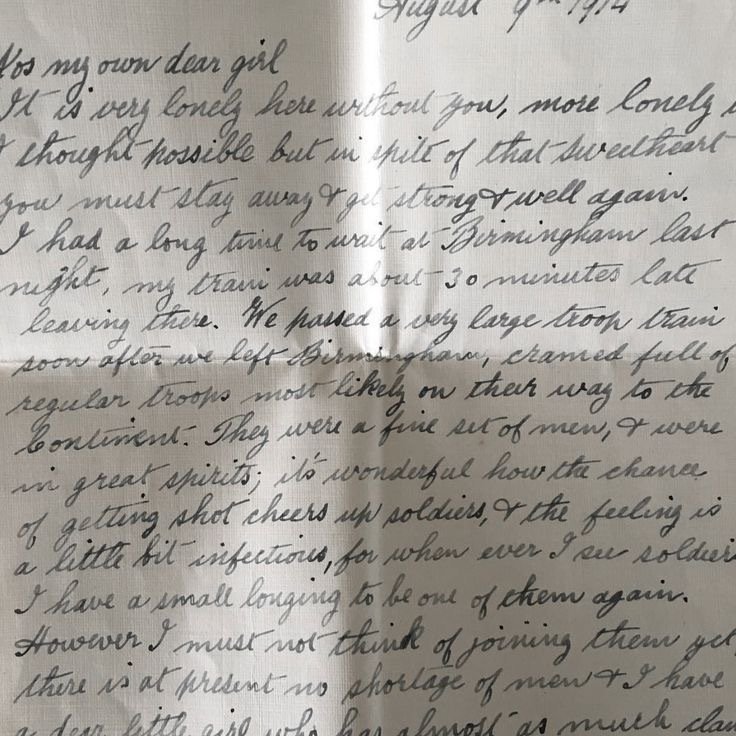 August 9th 1914
my own dear girl
It is very lonely here without you, more lonely
I thought possible but in spite of that sweetheart
you must stay away & get strong & well again.
I had a long time to wait at Birmingham last
night, my train was about 30 minutes late
leaving there. We passed a very large troop train
soon after we left Birmingham, cramed full of
regular troops most likely on their way to the
Continent. They were a fine set of men, & were
in great spirits; it's wonderful how the chance
of getting shot cheers up soldiers, & the feeling is
a little bit infectious, for when ever I see soldiers
I have a small longing to be one of them again.
However I must not think of joining them yet,
there is at present no shortage of men & I have
a dear little girl who has almost as much